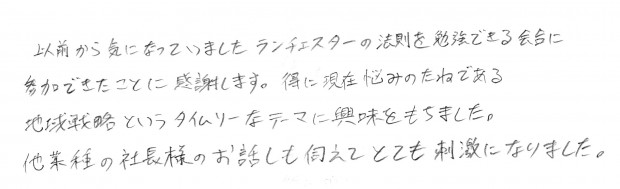 以前から気になっていましたランチェスターの法則を勉強できる会合に
参加できたことに感謝します。得に現在悩みのたねである
地域戦略というタイムリーなテーマに興味をもちました。
他業種の社長様のお話しも伺えてとても刺激になりました。